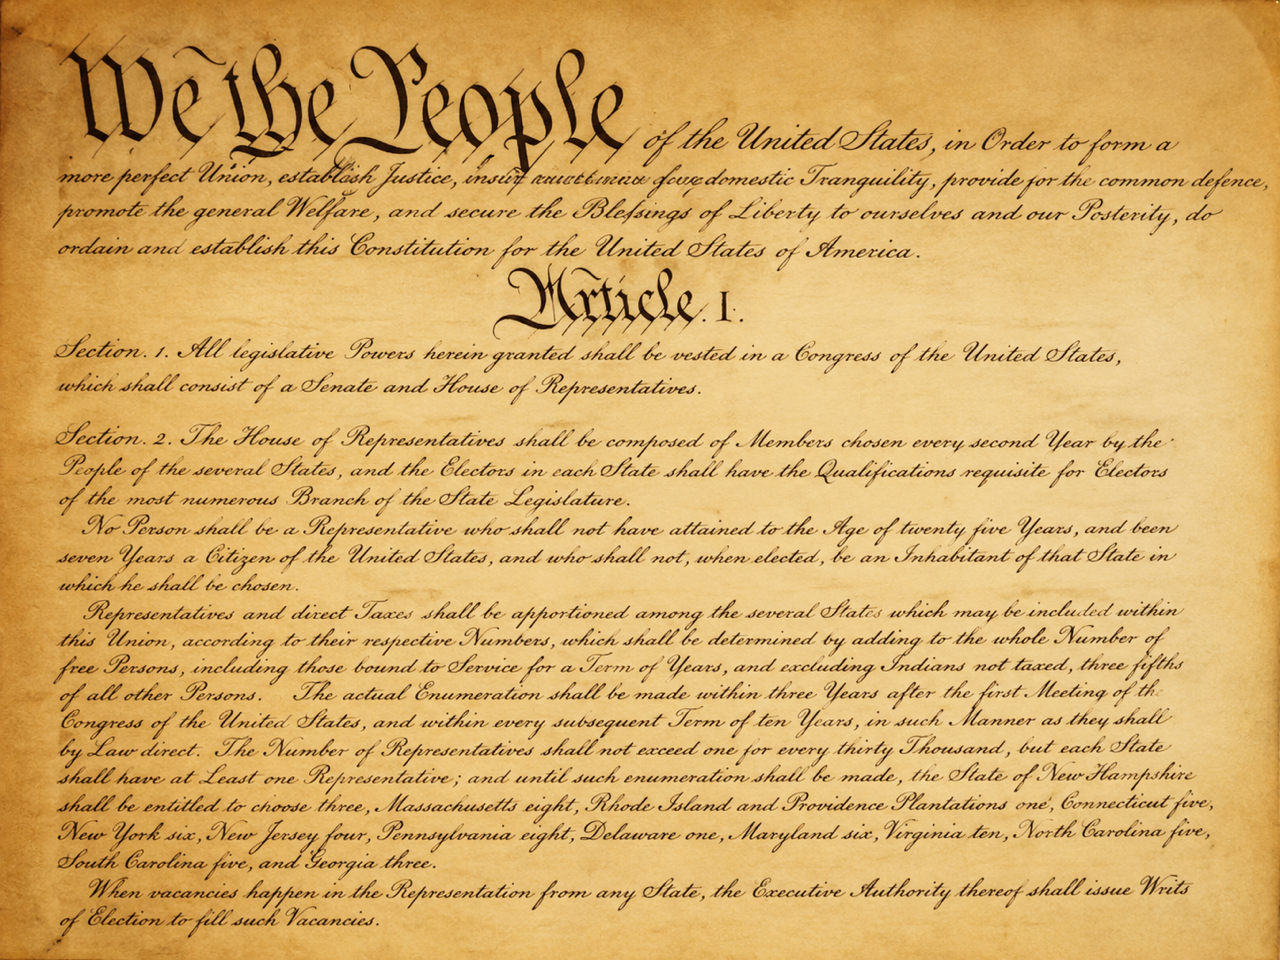 We the People of the United States, in Order to form a
more perfect Union, establish Justice, domestic Tranquility, provide for the common defence,
promote the general Welfare, and secure the Blessings of Liberty to ourselves and our Posterity, do
ordain and establish this Constitution for the United States of America.
Article. I.
Section. 1. All legislative Powers herein granted shall be vested in a Congress of the United States,
which shall consist of a Senate and House of Representatives.
Section. 2. The House of Representatives shall be composed of Members chosen every second Year by the
People of the several States, and the Electors in each State shall have the Qualifications requisite for Electors
of the most numerous Branch of the State Legislature.
No Person shall be a Representative who shall not have attained to the Age of twenty five Years, and been
seven Years a Citizen of the United States, and who shall not, when elected, be an Inhabitant of that State in
which he shall be chosen.
Representatives and direct Taxes shall be apportioned among the several States which may be included within
this Union, according to their respective Numbers, which shall be determined by adding to the whole Number of
free Persons, including those bound to Service for a Term of Years, and excluding Indians not taxed, three fifths
of all other Persons. The actual Enumeration shall be made within three Years after the first Meeting of the
Congress of the United States, and within every subsequent Term of ten Years, in such Manner as they shall
by Law direct. The Number of Representatives shall not exceed one for every thirty Thousand, but each State
shall have at Least one Representative; and until such enumeration shall be made, the State of New Hampshire
shall be entitled to choose three, Massachusetts eight, Rhode Island and Providence Plantations one, Connecticut five,
New York six, New Jersey four, Pennsylvania eight, Delaware one, Maryland six, Virginia ten, North Carolina five,
South Carolina five, and Georgia three.
When vacancies happen in the Representation from any State, the Executive Authority thereof shall issue Writs
of Election to fill such Vacancies.